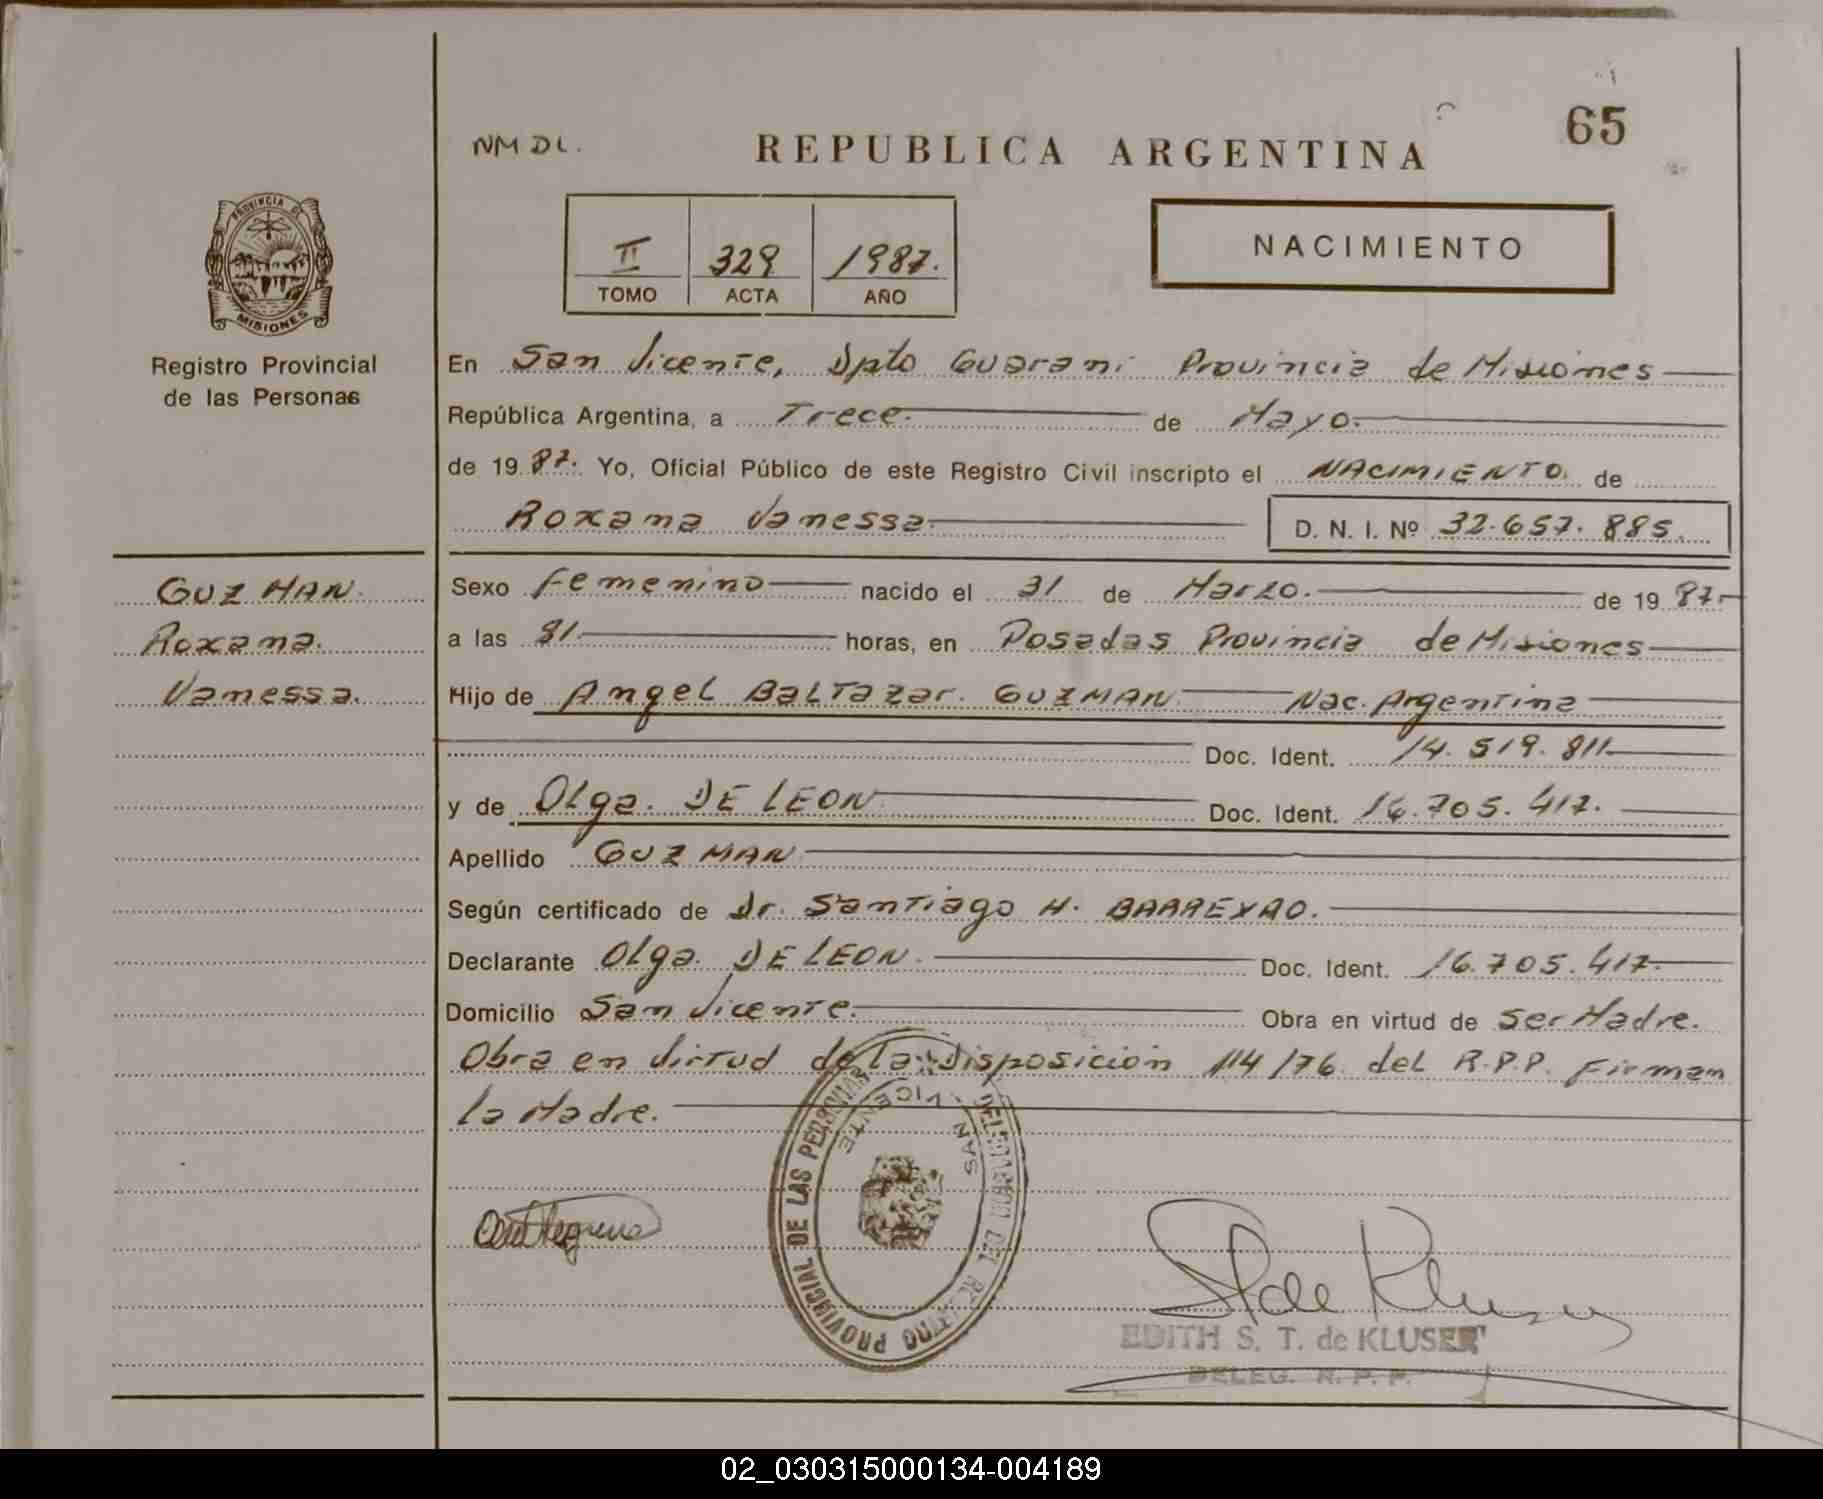 65
NMDL.
REPUBLICA ARGENTINA
PROVINCIA DE
MISIONES
Registro Provincial
de las Personas
II 329 1987.
TOMO ACTA AÑO
NACIMIENTO
En San Vicente, Dpto Guarani Provincia de Misiones
República Argentina, a Trece. de Mayo.
de 1987. Yo, Oficial Público de este Registro Civil inscripto el NACIMIENTO. de
Roxana Vanessa. D. N. I. Nº 32.657.885.
GUZMAN.
Roxana.
Vanessa.
Sexo Femenino nacido el 31 de Marzo. de 1987.
a las horas, en Posadas Provincia de Misiones
Hijo de Angel BALTazar. GUZMAN Nac. Argentina
Doc. Ident. 14.519.811
y de OLga. DE LEON Doc. Ident. 16.705.417.
Apellido GUZMAN
Según certificado de Dr. Santiago H. BARREYRO.
Declarante OLga. DE LEON. Doc. Ident. 16.705.417.
Domicilio San Vicente. Obra en virtud de ser Madre.
Obra en Virtud de la Disposición 114/76 del R.P.P. Firman
la Madre.
DELEGACION DEL REGISTRO PROVINCIAL DE LAS PERSONAS
SAN VICENTE
EDITH S. T. de KLUSER
DELEG. R. P. P.
02_030315000134-004189